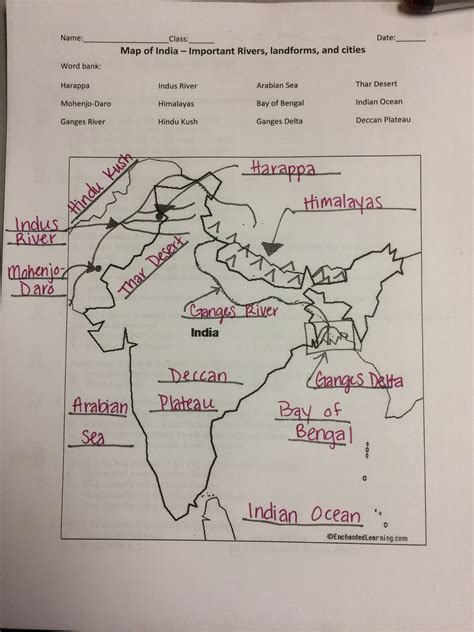 Name: Class: Date:
Map of India – Important Rivers, landforms, and cities
Word bank:
Harappa Indus River Arabian Sea Thar Desert
Mohenjo-Daro Himalayas Bay of Bengal Indian Ocean
Ganges River Hindu Kush Ganges Delta Deccan Plateau
Hindu Kush
Harappa
Himalayas
Indus
River
Mohenjo-
Daro
Thar Desert
Ganges River
India
Deccan
Plateau
Ganges Delta
Arabian
Sea
Bay of
Bengal
Indian Ocean
©EnchantedLearning.com